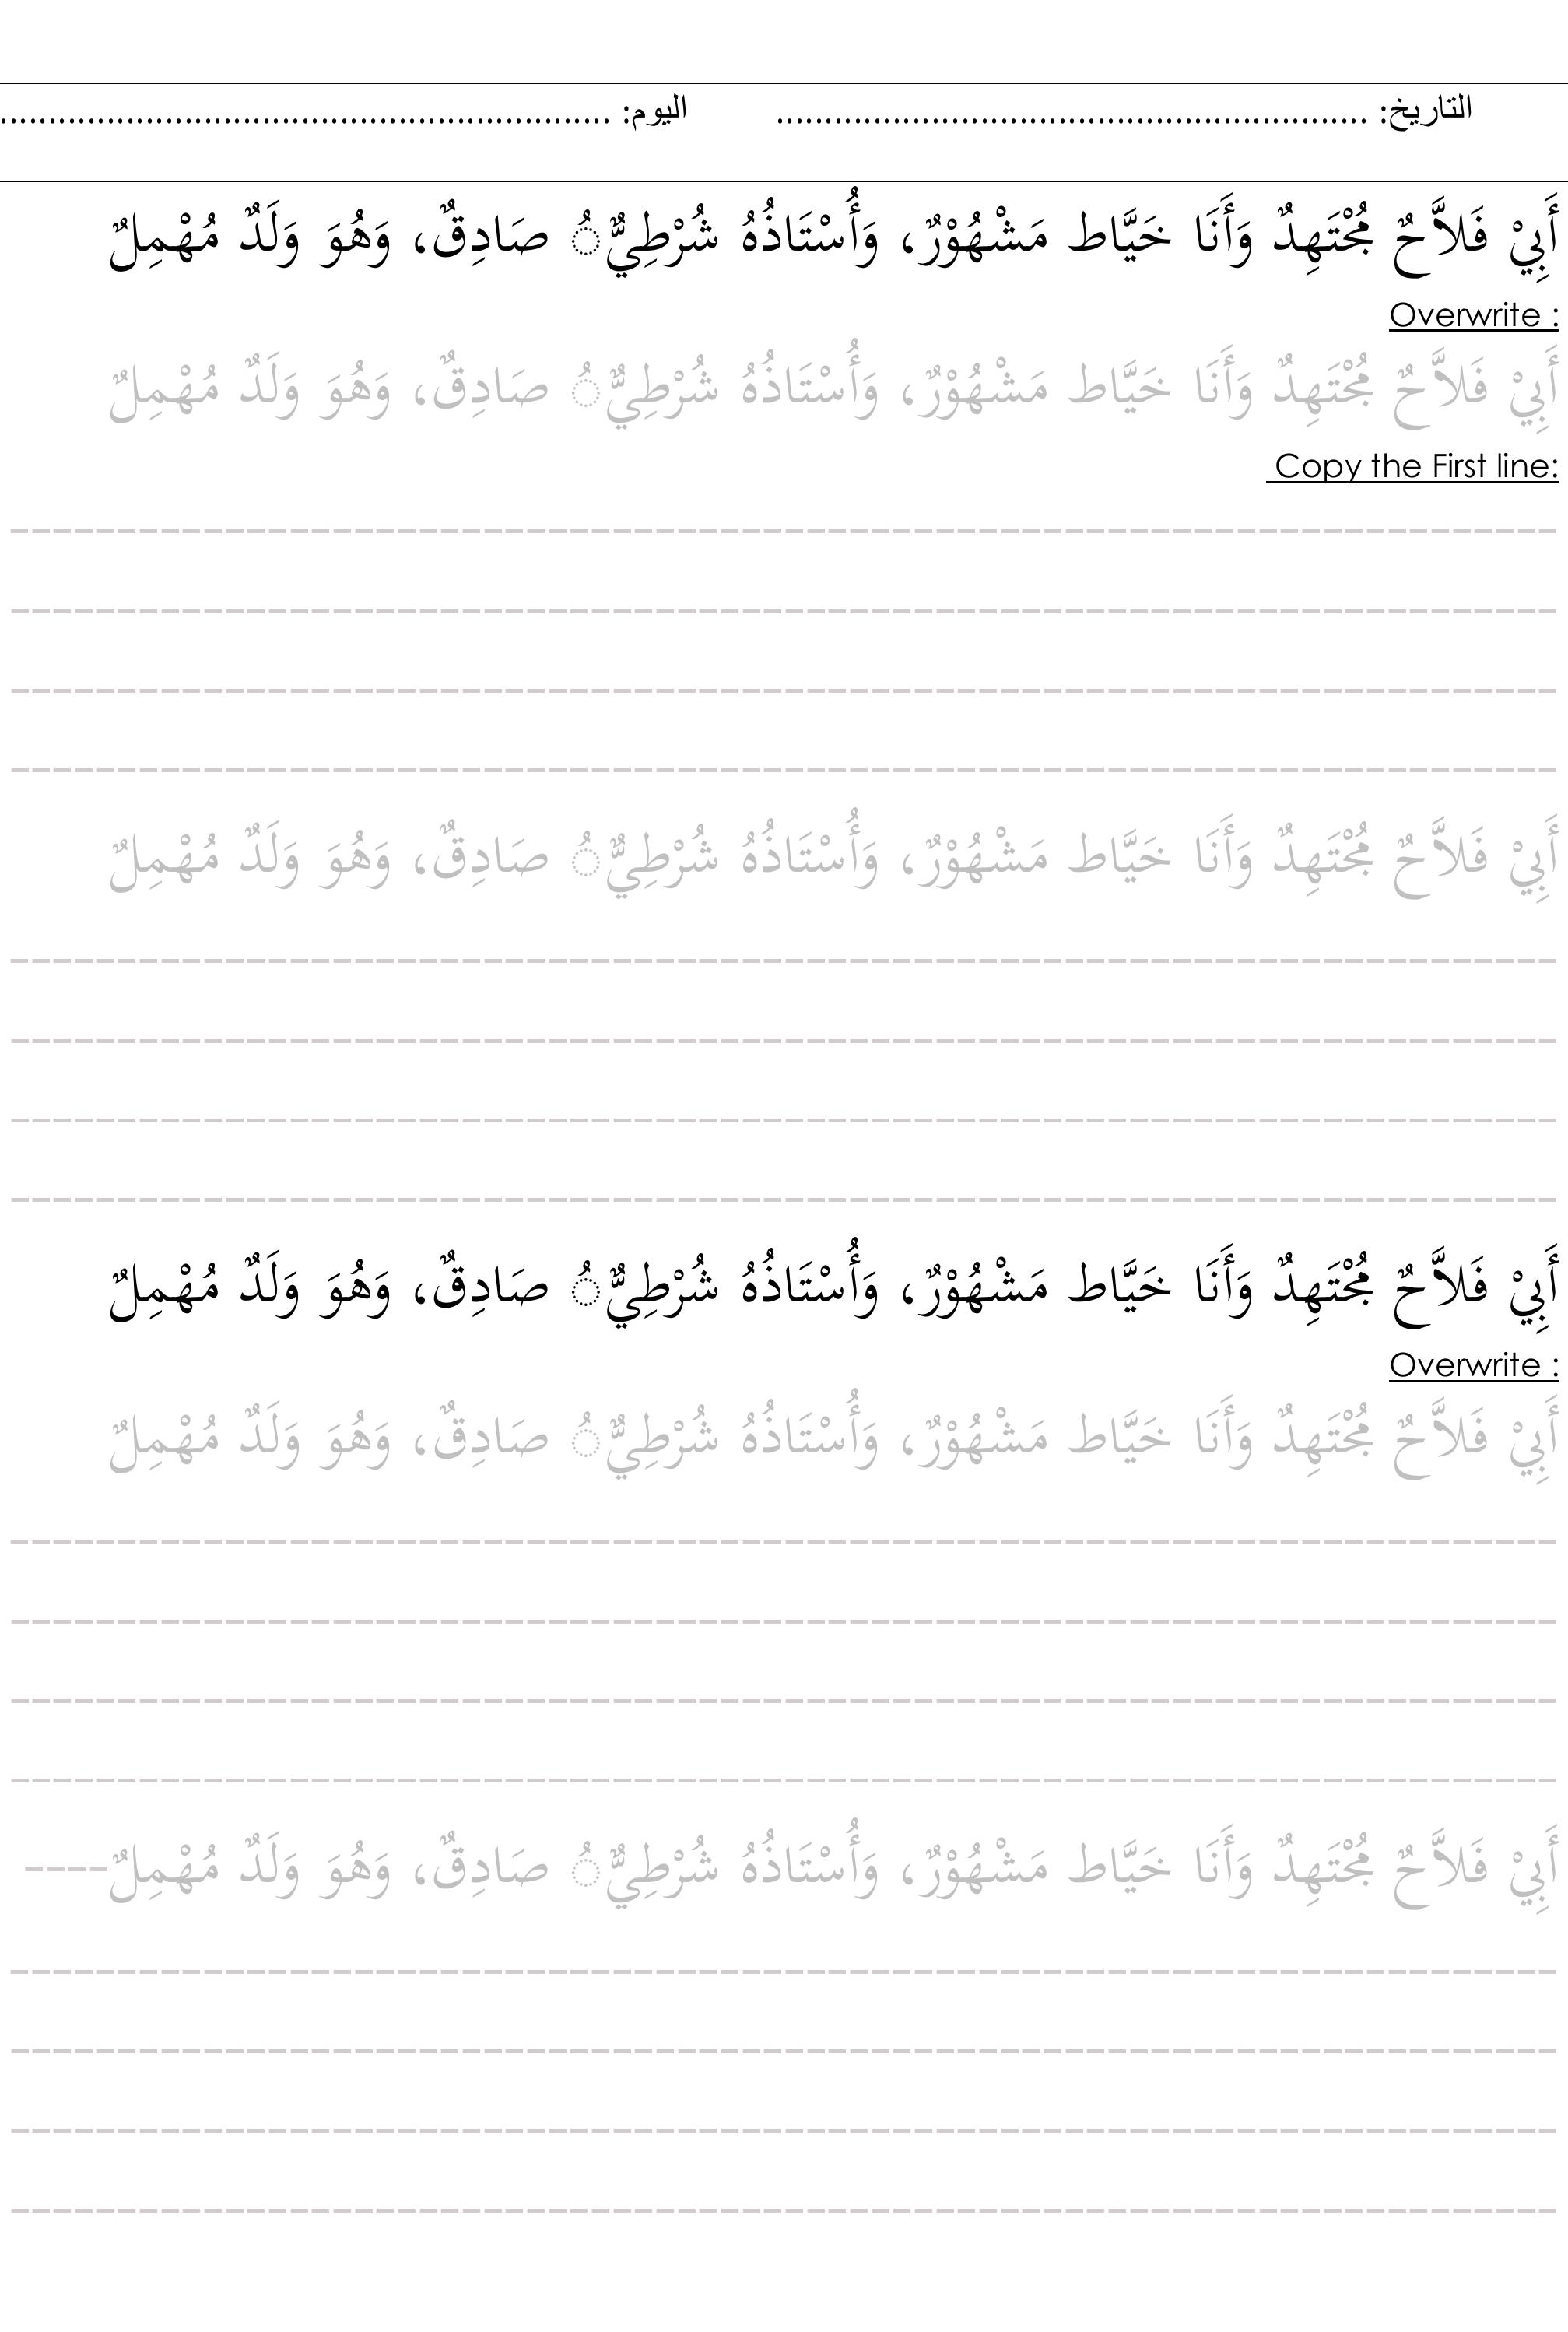 التاريخ: ............................................................. اليوم: ...............................................................
أَبِيْ فَلاَّحٌ مُجْتَهِدٌ وَأَنَا خَيَّاط مَشْهُوْرٌ، وَأُسْتَاذُهُ شُرْطِيٌّ◌ُ صَادِقٌ، وَهُوَ وَلَدٌ مُهْمِلٌ
Overwrite :
أَبِيْ فَلاَّحٌ مُجْتَهِدٌ وَأَنَا خَيَّاط مَشْهُوْرٌ، وَأُسْتَاذُهُ شُرْطِيٌّ◌ُ صَادِقٌ، وَهُوَ وَلَدٌ مُهْمِلٌ
Copy the First line:
أَبِيْ فَلاَّحٌ مُجْتَهِدٌ وَأَنَا خَيَّاط مَشْهُوْرٌ، وَأُسْتَاذُهُ شُرْطِيٌّ◌ُ صَادِقٌ، وَهُوَ وَلَدٌ مُهْمِلٌ
أَبِيْ فَلاَّحٌ مُجْتَهِدٌ وَأَنَا خَيَّاط مَشْهُوْرٌ، وَأُسْتَاذُهُ شُرْطِيٌّ◌ُ صَادِقٌ، وَهُوَ وَلَدٌ مُهْمِلٌ
Overwrite :
أَبِيْ فَلاَّحٌ مُجْتَهِدٌ وَأَنَا خَيَّاط مَشْهُوْرٌ، وَأُسْتَاذُهُ شُرْطِيٌّ◌ُ صَادِقٌ، وَهُوَ وَلَدٌ مُهْمِلٌ
أَبِيْ فَلاَّحٌ مُجْتَهِدٌ وَأَنَا خَيَّاط مَشْهُوْرٌ، وَأُسْتَاذُهُ شُرْطِيٌّ◌ُ صَادِقٌ، وَهُوَ وَلَدٌ مُهْمِلٌ----